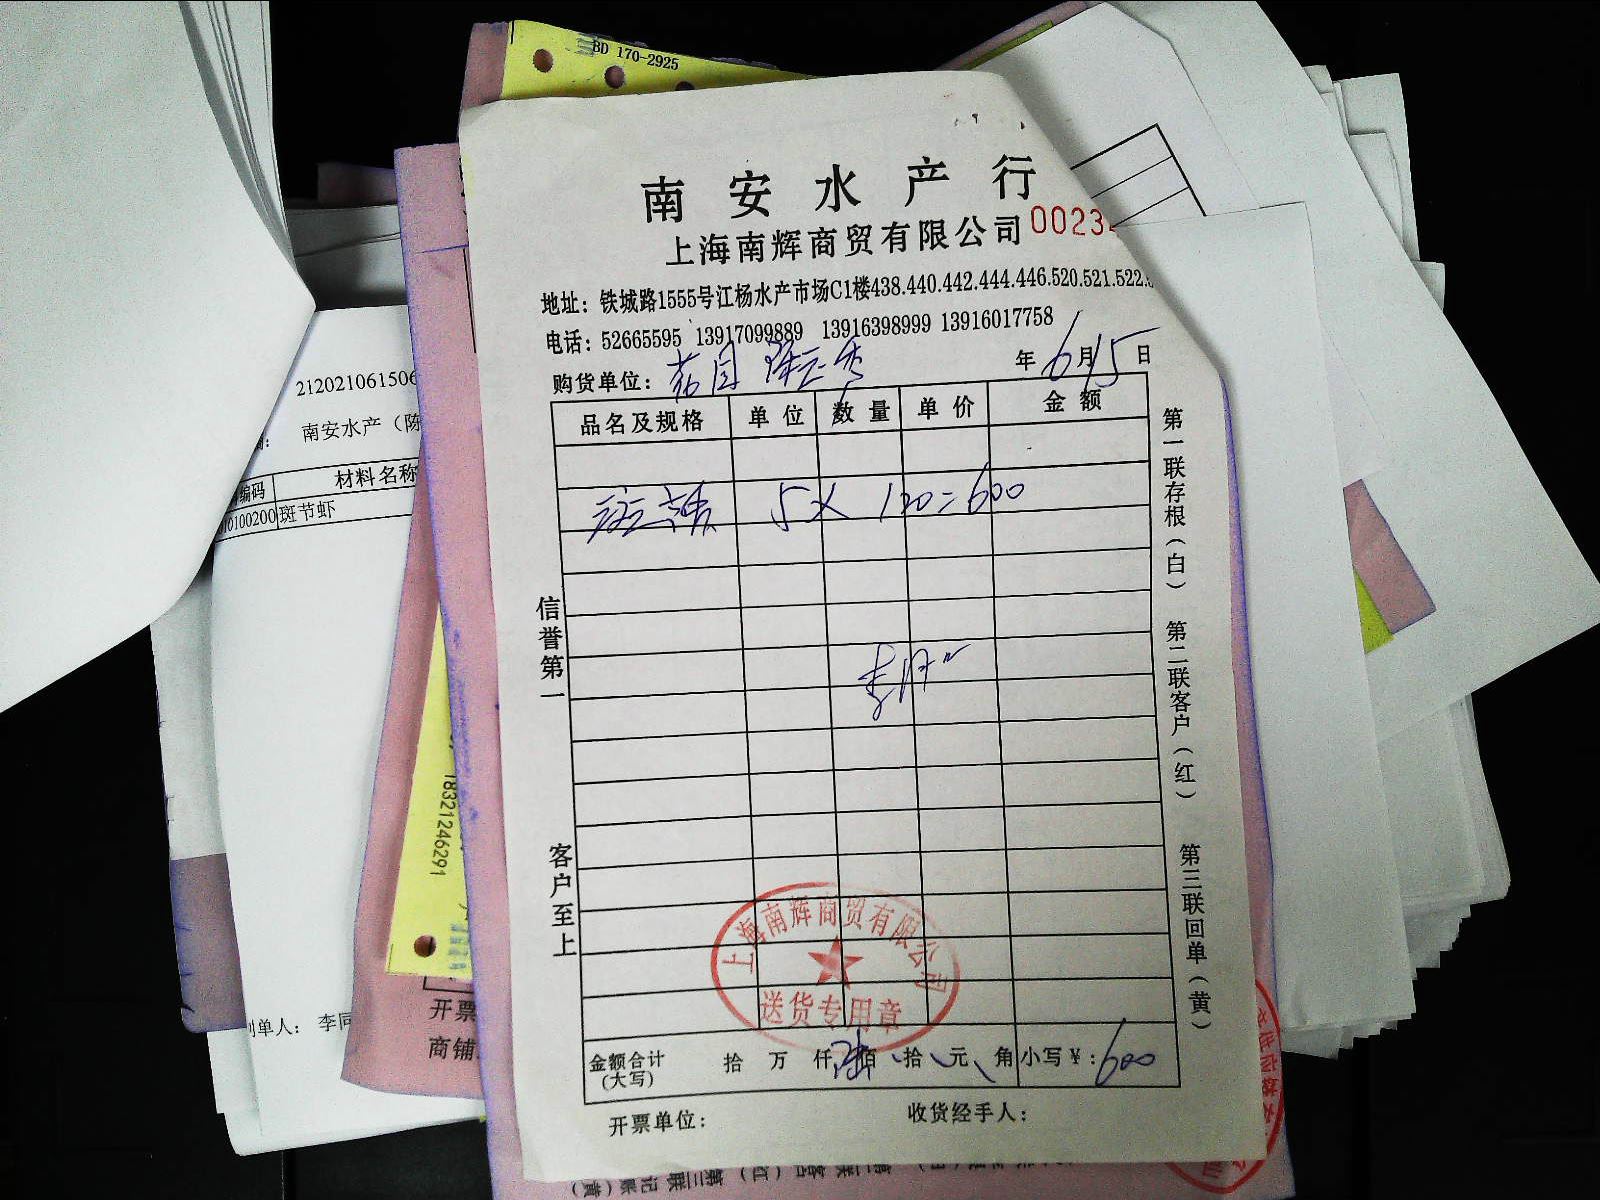 BD 170-2925
南安水产行
上海南辉商贸有限公司 0023
地址：铁城路1555号江杨水产市场C1楼438.440.442.444.446.520.521.522.
电话：52665595 13917099889 13916398999 13916017758
购货单位： 年 6 月 15 日
品名及规格 单位 数量 单价 金额
5 × 120 = 600
信誉第一
客户至上
第一联存根（白） 第二联客户（红） 第三联回单（黄）
上海南辉商贸有限公司
送货专用章
金额合计（大写） 拾 万 仟 陆 佰 拾 元 角 小写￥：600
开票单位： 收货经手人：
212021061506
南安水产（陈
编码 材料名称
0100200 斑节虾
制单人： 李同
18321246291
开票
商铺